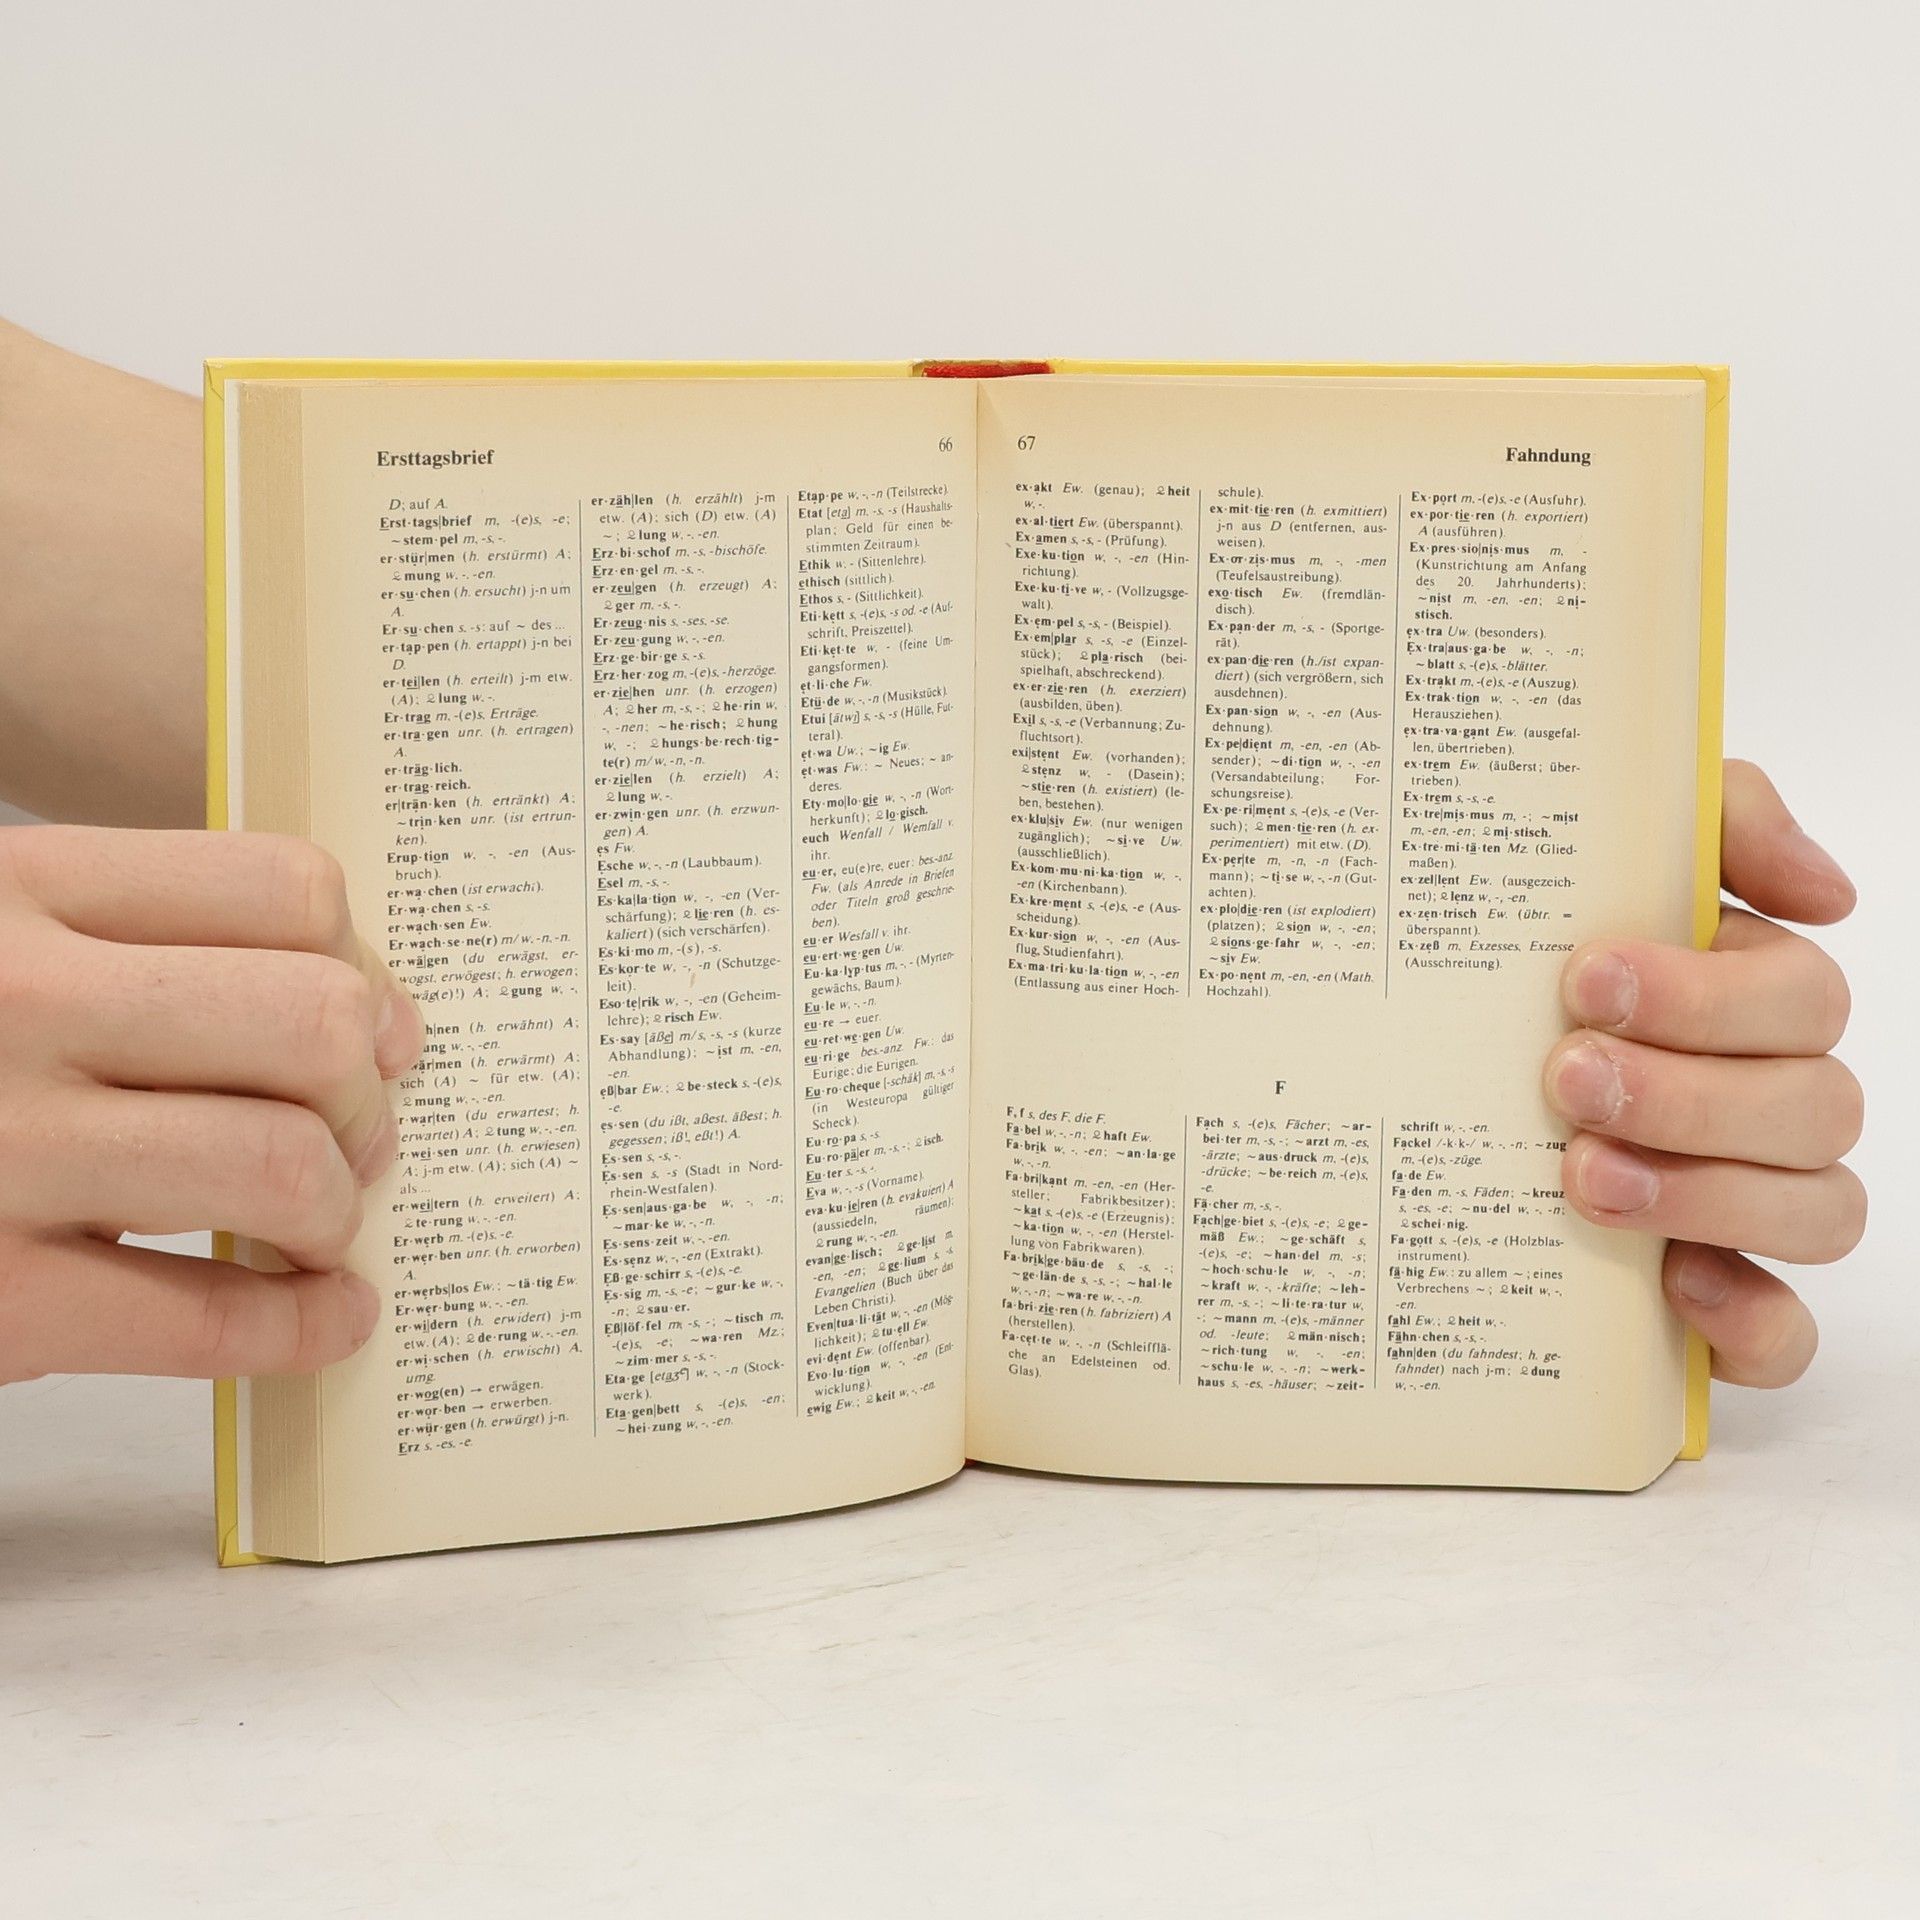 Ersttagsbrief
66
D; auf A.
Erst·tags|brief m, -(e)s, -e;
~stem·pel m, -s, -.
er·stür|men (h. erstürmt) A;
⚲mung w, -, -en.
er·su·chen (h. ersucht) j-n um
A.
Er·su·chen s, -s: auf ~ des ...
er·tap·pen (h. ertappt) j-n bei
D.
er·tei|len (h. erteilt) j-m etw.
(A); ⚲lung w, -.
Er·trag m, -(e)s, Erträge.
er·tra·gen unr. (h. ertragen)
A.
er·träg·lich.
er·trag·reich.
er|trän·ken (h. ertränkt) A;
~trin·ken unr. (ist ertrun-
ken).
Erup·tion w, -, -en (Aus-
bruch).
er·wa·chen (ist erwacht).
Er·wa·chen s, -s.
er·wach·sen Ew.
Er·wach·se·ne(r) m/w, -n, -n.
er·wä|gen (du erwägst, er-
wogst, erwögest; h. erwogen;
wäg(e)!) A; ⚲gung w, -,
h|nen (h. erwähnt) A;
ung w, -, -en.
wär|men (h. erwärmt) A;
sich (A) ~ für etw. (A);
⚲mung w, -, -en.
r·war|ten (du erwartest; h.
erwartet) A; ⚲tung w, -, -en.
r·wei·sen unr. (h. erwiesen)
A; j-m etw. (A); sich (A) ~
als ...
er·wei|tern (h. erweitert) A;
⚲te·rung w, -, -en.
Er·werb m, -(e)s, -e.
er·wer·ben unr. (h. erworben)
A.
er·werbs|los Ew.; ~tä·tig Ew.
Er·wer·bung w, -, -en.
er·wi|dern (h. erwidert) j-m
etw. (A); ⚲de·rung w, -, -en.
er·wi·schen (h. erwischt) A,
umg.
er·wog(en) → erwägen.
er·wor·ben → erwerben.
er·wür·gen (h. erwürgt) j-n.
Erz s, -es, -e.
er·zäh|len (h. erzählt) j-m
etw. (A); sich (D) etw. (A)
~; ⚲lung w, -, -en.
Erz·bi·schof m, -s, -bischöfe.
Erz·en·gel m, -s, -.
er·zeu|gen (h. erzeugt) A;
⚲ger m, -s, -.
Er·zeug·nis s, -ses, -se.
Er·zeu·gung w, -, -en.
Erz·ge·bir·ge s, -s.
Erz·her·zog m, -(e)s, -herzöge.
er·zie|hen unr. (h. erzogen)
A; ⚲her m, -s, -; ⚲he·rin w,
-, -nen; ~he·risch; ⚲hung
w, -; ⚲hungs·be·rech·tig-
te(r) m/w, -n, -n.
er·zie|len (h. erzielt) A;
⚲lung w, -.
er·zwin·gen unr. (h. erzwun-
gen) A.
es Fw.
Esche w, -, -n (Laubbaum).
Esel m, -s, -.
Es·ka|la·tion w, -, -en (Ver-
schärfung); ⚲lie·ren (h. es-
kaliert) (sich verschärfen).
Es·ki·mo m, -(s), -s.
Es·kor·te w, -, -n (Schutzge-
leit).
Eso·te|rik w, -, -en (Geheim-
lehre); ⚲risch Ew.
Es·say [äße] m/s, -s, -s (kurze
Abhandlung); ~ist m, -en,
-en.
eß|bar Ew.; ⚲be·steck s, -(e)s,
-e.
es·sen (du ißt, aßest, äßest; h.
gegessen; iß!, eßt!) A.
Es·sen s, -s, -.
Es·sen s, -s (Stadt in Nord-
rhein-Westfalen).
Es·sen|aus·ga·be w, -, -n;
~mar·ke w, -, -n.
Es·sens·zeit w, -, -en.
Es·senz w, -, -en (Extrakt).
Eß·ge·schirr s, -(e)s, -e.
Es·sig m, -s, -e; ~gur·ke w, -,
-n; ⚲sau·er.
Eß|löf·fel m, -s, -; ~tisch m,
-(e)s, -e; ~wa·ren Mz.;
~zim·mer s, -s, -.
Eta·ge [etaʒe] w, -, -n (Stock-
werk).
Eta·gen|bett s, -(e)s, -en;
~hei·zung w, -, -en.
Etap·pe w, -, -n (Teilstrecke).
Etat [eta] m, -s, -s (Haushalts-
plan; Geld für einen be-
stimmten Zeitraum).
Ethik w, - (Sittenlehre).
ethisch (sittlich).
Ethos s, - (Sittlichkeit).
Eti·kett s, -(e)s, -s od. -e (Auf-
schrift, Preiszettel).
Eti·ket·te w, - (feine Um-
gangsformen).
et·li·che Fw.
Etü·de w, -, -n (Musikstück).
Etui [ätwi] s, -s, -s (Hülle, Fut-
teral).
et·wa Uw.; ~ig Ew.
et·was Fw.: ~ Neues; ~ an-
deres.
Ety·mo|lo·gie w, -, -n (Wort-
herkunft); ⚲lo·gisch.
euch Wenfall / Wemfall v.
ihr.
eu·er, eu(e)re, euer: bes.-anz.
Fw. (als Anrede in Briefen
oder Titeln groß geschrie-
ben).
eu·er Wesfall v. ihr.
eu·ert·we·gen Uw.
Eu·ka·lyp·tus m, -, - (Myrten-
gewächs, Baum).
Eu·le w, -, -n.
eu·re → euer.
eu·ret·we·gen Uw.
eu·ri·ge bes.-anz. Fw.: das
Eurige; die Eurigen.
Eu·ro·cheque [-schäk] m, -s, -s
(in Westeuropa gültiger
Scheck).
Eu·ro·pa s, -s.
Eu·ro·pä|er m, -s, -; ⚲isch.
Eu·ter s, -s, -.
Eva w, -, -s (Vorname).
eva·ku·ie|ren (h. evakuiert) A
(aussiedeln, räumen);
⚲rung w, -, -en.
evan|ge·lisch; ⚲ge·list m,
-en, -en; ⚲ge·lium s, -s,
Evangelien (Buch über das
Leben Christi).
Even|tua·li·tät w, -, -en (Mög-
lichkeit); ⚲tu·ell Ew.
evi·dent Ew. (offenbar).
Evo·lu·tion w, -, -en (Ent-
wicklung).
ewig Ew.; ⚲keit w, -, -en.
67
Fahndung
ex·akt Ew. (genau); ⚲heit
w, -.
ex·al·tiert Ew. (überspannt).
Ex·amen s, -s, - (Prüfung).
Exe·ku·tion w, -, -en (Hin-
richtung).
Exe·ku·ti·ve w, - (Vollzugsge-
walt).
Ex·em·pel s, -s, - (Beispiel).
Ex·em|plar s, -s, -e (Einzel-
stück); ⚲pla·risch (bei-
spielhaft, abschreckend).
ex·er·zie·ren (h. exerziert)
(ausbilden, üben).
Exil s, -s, -e (Verbannung; Zu-
fluchtsort).
exi|stent Ew. (vorhanden);
⚲stenz w, - (Dasein);
~stie·ren (h. existiert) (le-
ben, bestehen).
ex·klu|siv Ew. (nur wenigen
zugänglich); ~si·ve Uw.
(ausschließlich).
Ex·kom·mu·ni·ka·tion w, -,
-en (Kirchenbann).
Ex·kre·ment s, -(e)s, -e (Aus-
scheidung).
Ex·kur·sion w, -, -en (Aus-
flug, Studienfahrt).
Ex·ma·tri·ku·la·tion w, -, -en
(Entlassung aus einer Hoch-
schule).
ex·mit·tie·ren (h. exmittiert)
j-n aus D (entfernen, aus-
weisen).
Ex·or·zis·mus m, -, -men
(Teufelsaustreibung).
exo·tisch Ew. (fremdlän-
disch).
Ex·pan·der m, -s, - (Sportge-
rät).
ex·pan·die·ren (h./ist expan-
diert) (sich vergrößern, sich
ausdehnen).
Ex·pan·sion w, -, -en (Aus-
dehnung).
Ex·pe|dient m, -en, -en (Ab-
sender); ~di·tion w, -, -en
(Versandabteilung; For-
schungsreise).
Ex·pe·ri|ment s, -(e)s, -e (Ver-
such); ⚲men·tie·ren (h. ex-
perimentiert) mit etw. (D).
Ex·per|te m, -n, -n (Fach-
mann); ~ti·se w, -, -n (Gut-
achten).
ex·plo|die·ren (ist explodiert)
(platzen); ⚲sion w, -, -en;
⚲sions·ge·fahr w, -, -en;
~siv Ew.
Ex·po·nent m, -en, -en (Math.
Hochzahl).
Ex·port m, -(e)s, -e (Ausfuhr).
ex·por·tie·ren (h. exportiert)
A (ausführen).
Ex·pres·sio|nis·mus m, -
(Kunstrichtung am Anfang
des 20. Jahrhunderts);
~nist m, -en, -en; ⚲ni-
stisch.
ex·tra Uw. (besonders).
Ex·tra|aus·ga·be w, -, -n;
~blatt s, -(e)s, -blätter.
Ex·trakt m, -(e)s, -e (Auszug).
Ex·trak·tion w, -, -en (das
Herausziehen).
ex·tra·va·gant Ew. (ausgefal-
len, übertrieben).
ex·trem Ew. (äußerst; über-
trieben).
Ex·trem s, -s, -e.
Ex·tre|mis·mus m, -; ~mist
m, -en, -en; ⚲mi·stisch.
Ex·tre·mi·tä·ten Mz. (Glied-
maßen).
ex·zel|lent Ew. (ausgezeich-
net); ⚲lenz w, -, -en.
ex·zen·trisch Ew. (übtr. =
überspannt).
Ex·zeß m, Exzesses, Exzesse
(Ausschreitung).
F
F, f s, des F, die F.
Fa·bel w, -, -n; ⚲haft Ew.
Fa·brik w, -, -en; ~an·la·ge
w, -, -n.
Fa·bri|kant m, -en, -en (Her-
steller; Fabrikbesitzer);
~kat s, -(e)s, -e (Erzeugnis);
~ka·tion w, -, -en (Herstel-
lung von Fabrikwaren).
Fa·brik|ge·bäu·de s, -s, -;
~ge·län·de s, -s, -; ~hal·le
w, -, -n; ~wa·re w, -, -n.
fa·bri·zie·ren (h. fabriziert) A
(herstellen).
Fa·cet·te w, -, -n (Schleifflä-
che an Edelsteinen od.
Glas).
Fach s, -(e)s, Fächer; ~ar-
bei·ter m, -s, -; ~arzt m, -es,
-ärzte; ~aus·druck m, -(e)s,
-drücke; ~be·reich m, -(e)s,
-e.
Fä·cher m, -s, -.
Fach|ge·biet s, -(e)s, -e; ⚲ge-
mäß Ew.; ~ge·schäft s,
-(e)s, -e; ~han·del m, -s;
~hoch·schu·le w, -, -n;
~kraft w, -, -kräfte; ~leh-
rer m, -s, -; ~li·te·ra·tur w,
-; ~mann m, -(e)s, -männer
od. -leute; ⚲män·nisch;
~rich·tung w, -, -en;
~schu·le w, -, -n; ~werk-
haus s, -es, -häuser; ~zeit-
schrift w, -, -en.
Fackel /-k·k-/ w, -, -n; ~zug
m, -(e)s, -züge.
fa·de Ew.
Fa·den m, -s, Fäden; ~kreuz
s, -es, -e; ~nu·del w, -, -n;
⚲schei·nig.
Fa·gott s, -(e)s, -e (Holzblas-
instrument).
fä·hig Ew.: zu allem ~; eines
Verbrechens ~; ⚲keit w, -,
-en.
fahl Ew.; ⚲heit w, -.
Fähn·chen s, -s, -.
fahn|den (du fahndest; h. ge-
fahndet) nach j-m; ⚲dung
w, -, -en.